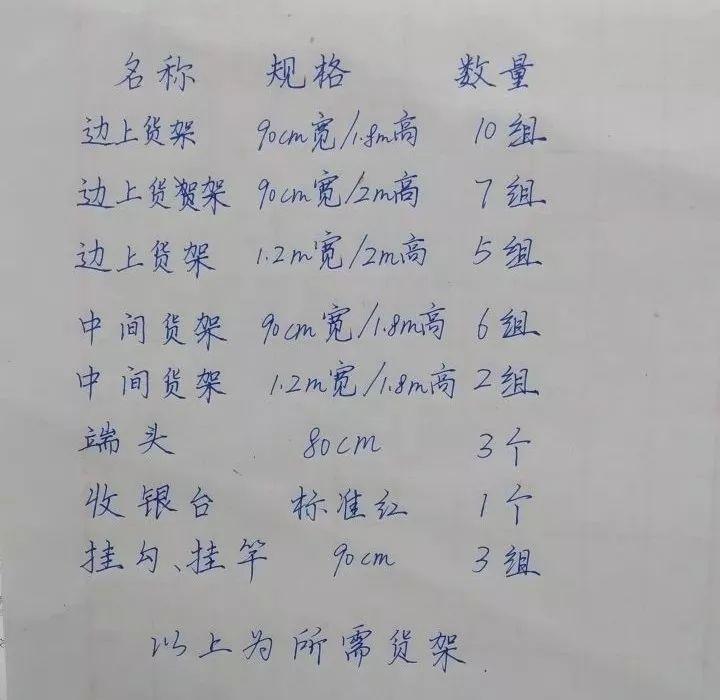 名称 规格 数量
边上货架 90cm宽/1.8m高 10组
边上货贺架 90cm宽/2m高 7组
边上货架 1.2m宽/2m高 5组
中间货架 90cm宽/1.8m高 6组
中间货架 1.2m宽/1.8m高 2组
端头 80cm 3个
收银台 标准红 1个
挂勾、挂竿 90cm 3组
以上为所需货架.